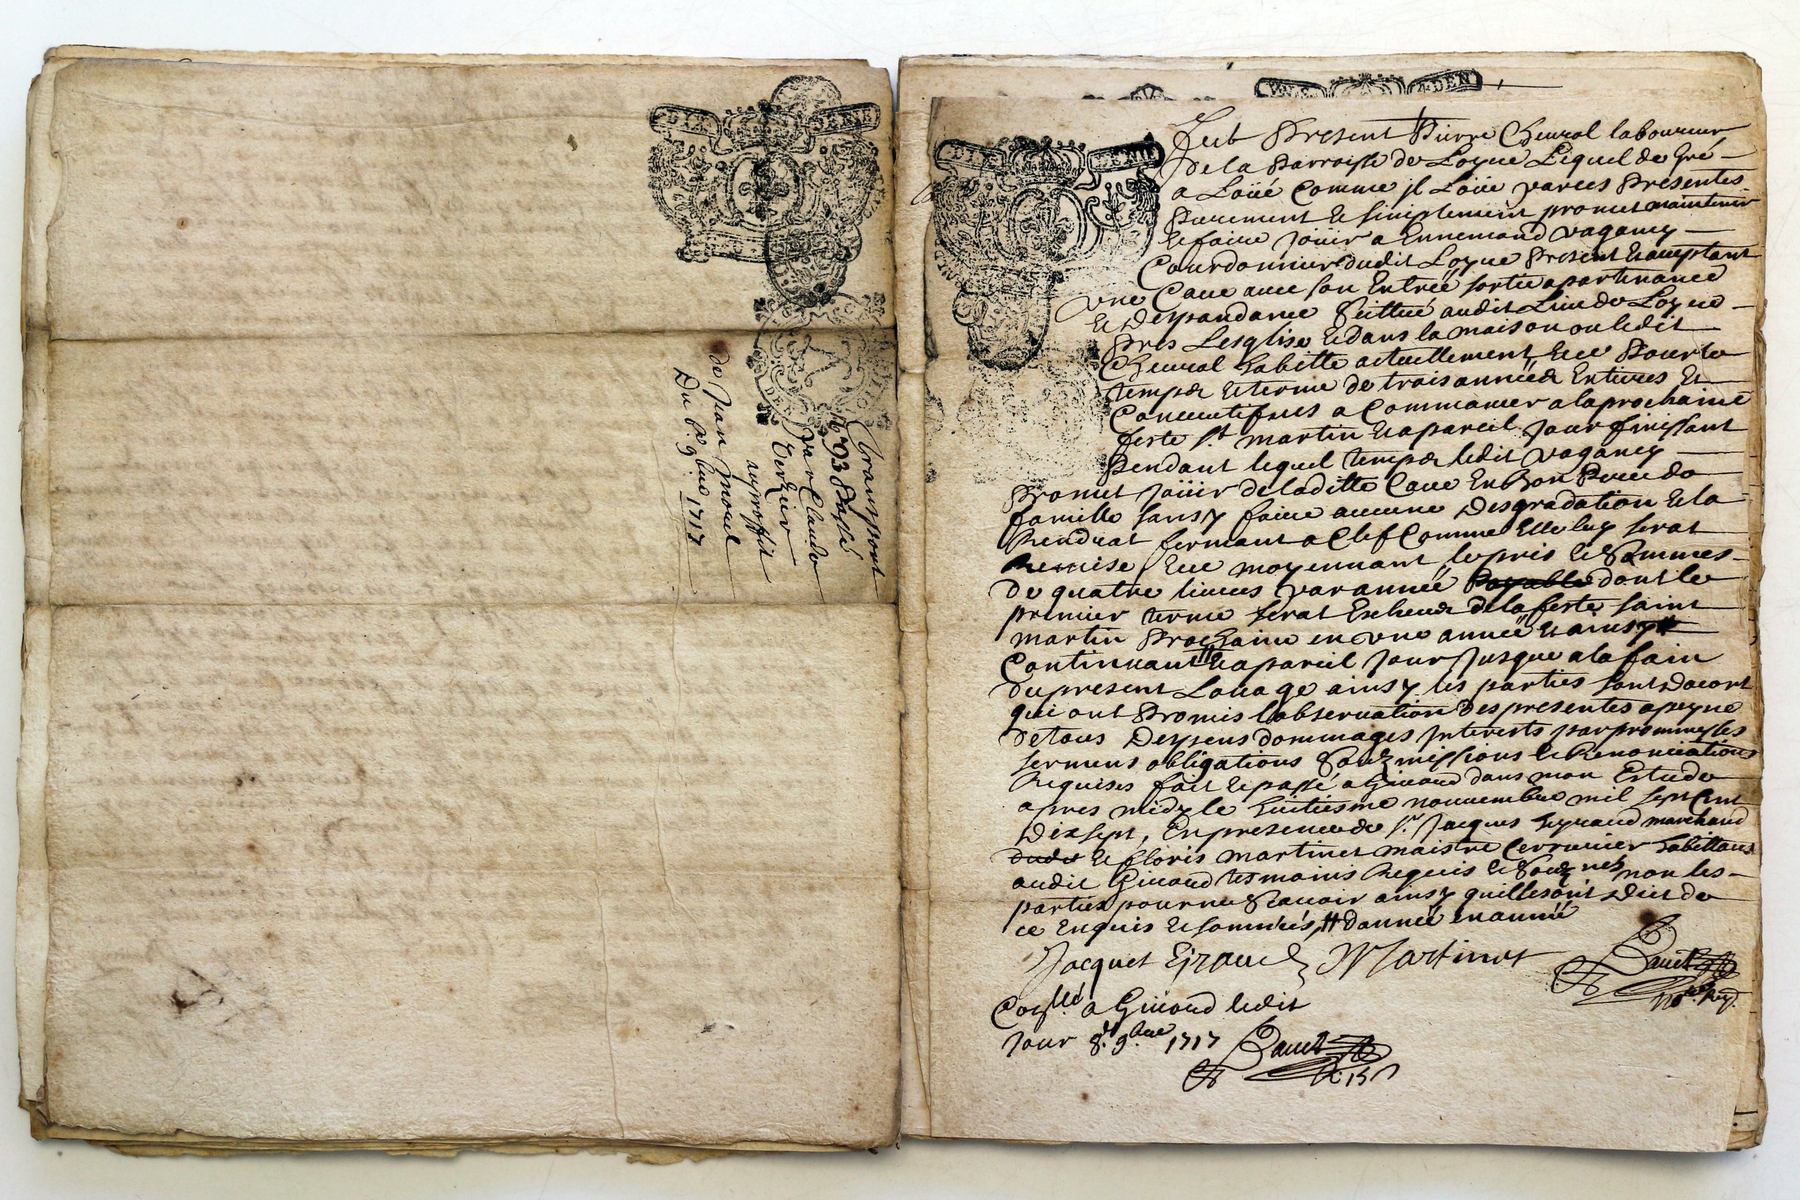 DIX DENIE
transport
passé
par Claude
Verzier
au proffit
de Jean
Du 6e 9bre 1717
DIX DENIE
DEN
Feut Present Pierre Cheural laboureur
de la Parroisse de Loyue Lequel de Gré
a Loüé Comme jl Loüe par ces Presentes
Purement et simplement promet maintenir
et faire joüir a Ennemand vaganey
Courdonnier dudit Loyue Present et aceptant
vne Caue auec son Entreé sortie apartenance
et Despandance scittué audit Lieu de Loyue
Pres Lesglise et dans la maison ou ledit
Cheural habitte actuellement, et ce Pour le
temps et terme de trois anneés Entieres et
Concecutifues a Commancer a la prochaine
feste st martin et a pareil jour finissant
Pendant lequel temps ledit vaganey
Promet joüir de laditte Caue En Bon Pere de
famille sans y faire aucune Desgradation et la
Rendrat fermant a Clef Comme Elle luy serat
Remise, et ce moyennant le pris et sommes
de quatre liures par anneé payable dont le
premier terme serat Escheu de la feste saint
martin Prochaine en vne anneé et ainsy
Continuant # et a pareil jour jusque a la fain
du present Louage ainsy les parties sont dacort
qui ont Promis lobseruation des presentes a peyne
de tous Despens dommages jnterests par prommesses
sermens obligations soubzmissions et Renonciations
Requises fait et passé a Giuord dans mon Estude
apres midy le huitiesme nouuembre mil sept Cent
Dix sept, En presence de sr Jacques Eyraud marchand
dudit et floris martinet maistre Cerrurier habittans
audit Giuord tesmoins Requis et soubznés non les
parties pour ne scauoir ainsy quilles ont Dict de
ce Enquis et sommeés, # danneé en anneé
Jacques Eyraud Martinet
Conllé a Giuord ledit
jour 8e 9bre 1717